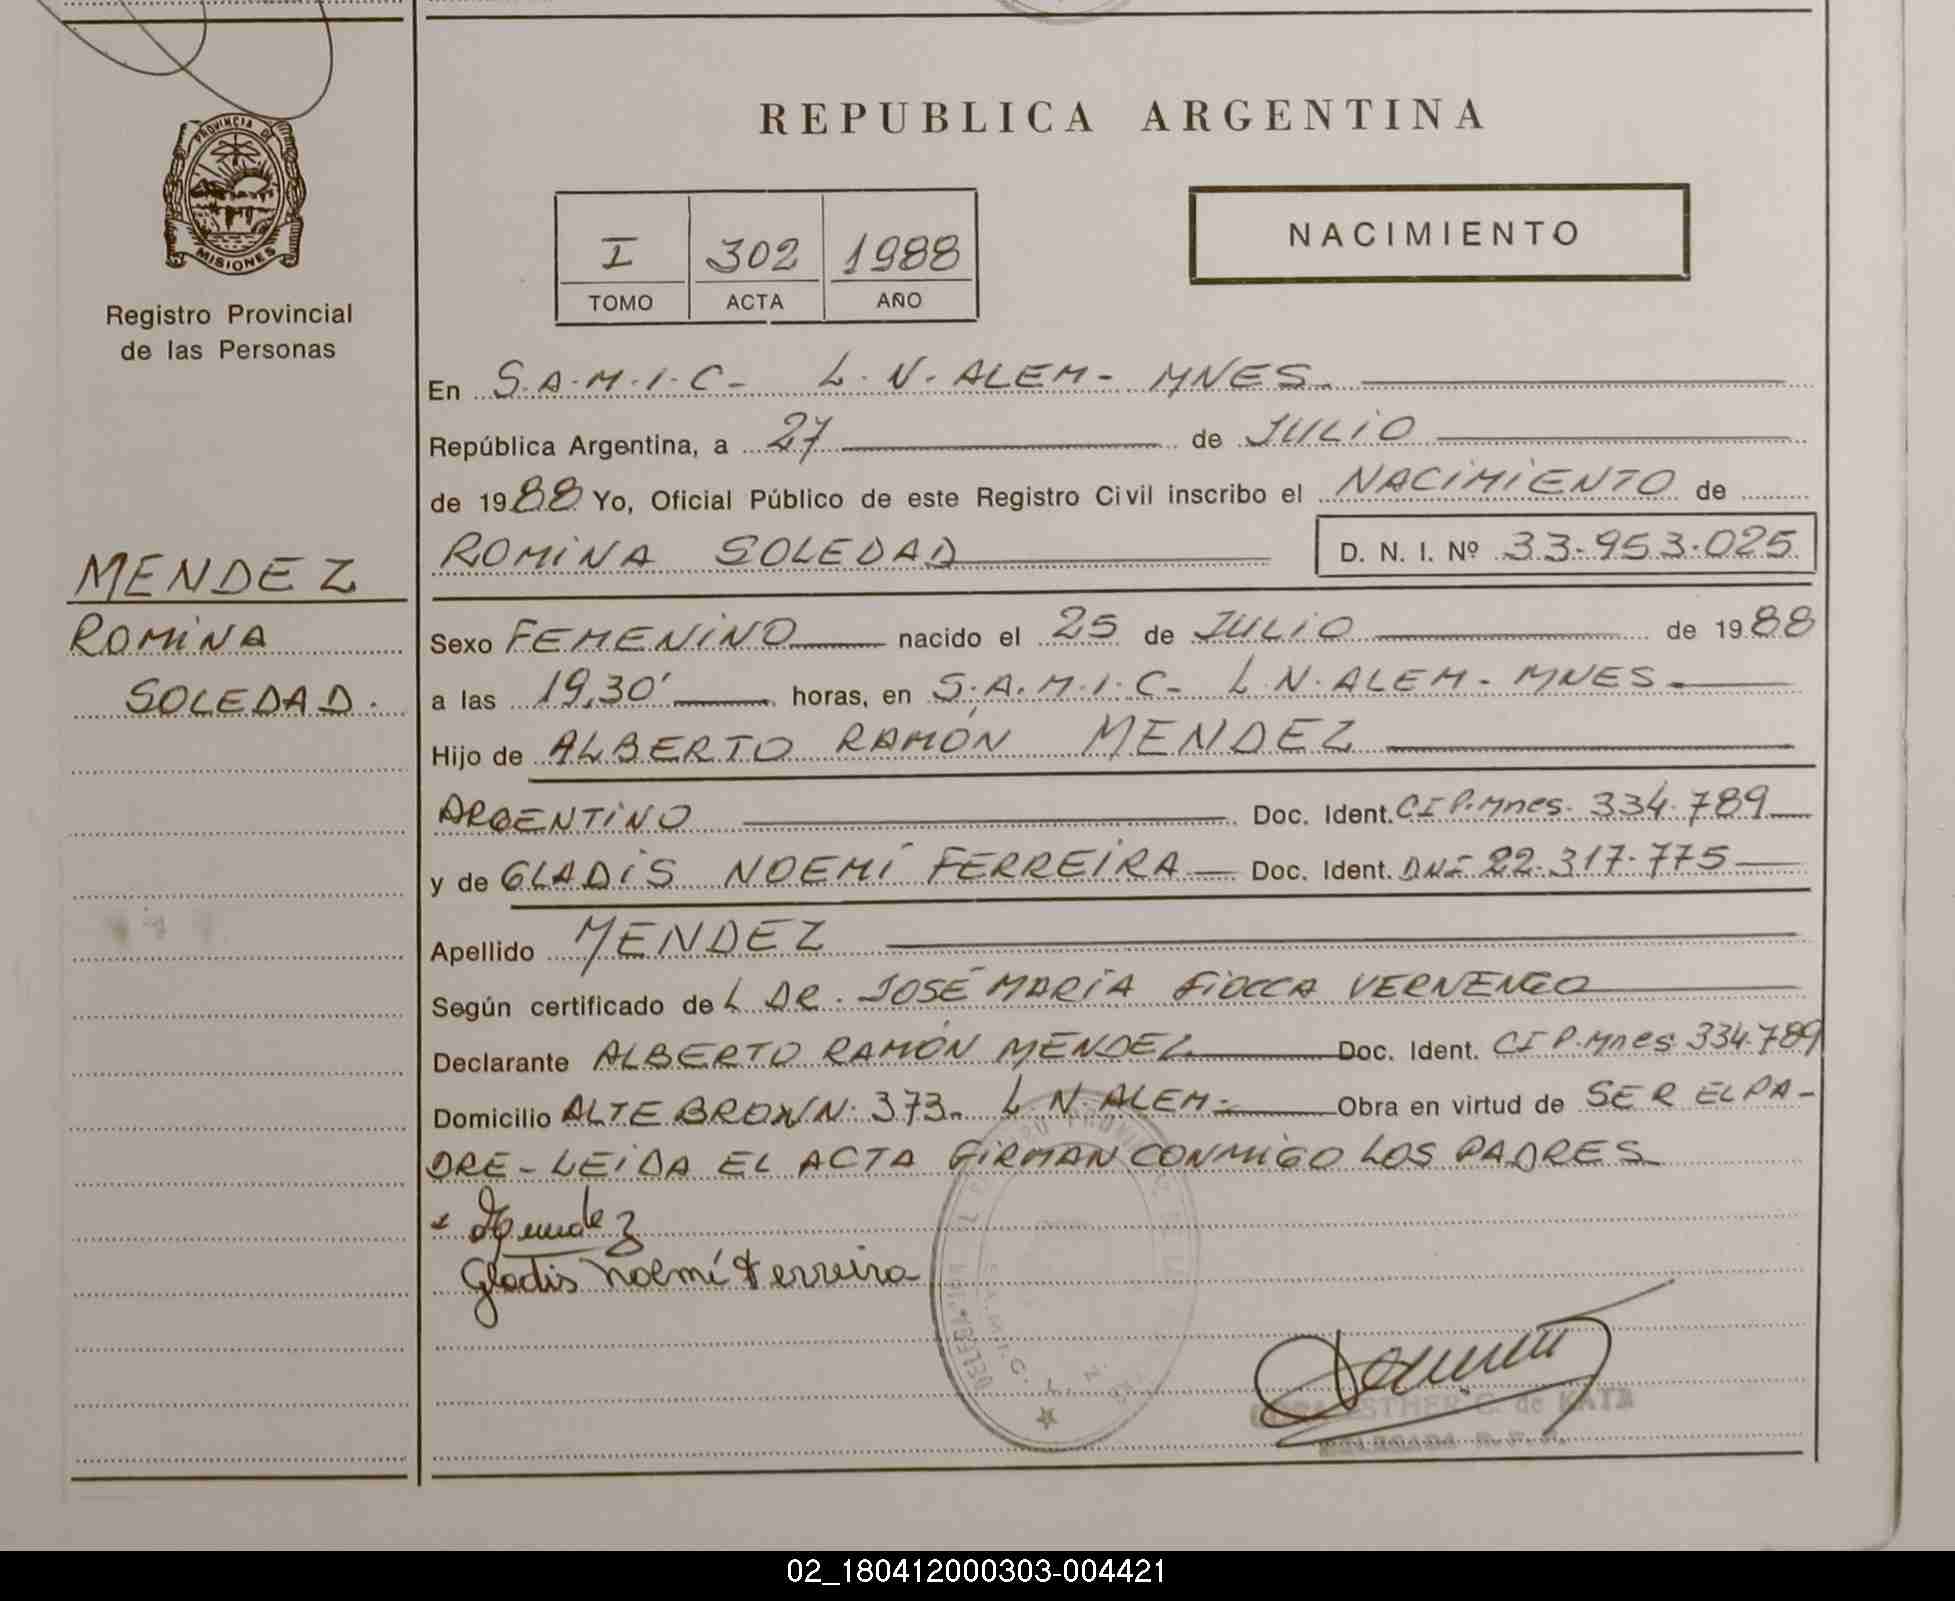 PROVINCIA DE
MISIONES
Registro Provincial
de las Personas
MENDEZ
ROMINA
SOLEDAD.
REPUBLICA ARGENTINA
I 302 1988
TOMO ACTA AÑO
NACIMIENTO
En S.A.M.I.C- L.N. ALEM- MNES.
República Argentina, a 27 de JULIO
de 1988 Yo, Oficial Público de este Registro Civil inscribo el NACIMIENTO de
ROMINA SOLEDAD D. N. I. Nº 33-953-025
Sexo FEMENINO nacido el 25 de JULIO de 1988
a las 19,30' horas, en S.A.M.I.C- L.N. ALEM- MNES-
Hijo de ALBERTO RAMÓN MENDEZ
ARGENTINO Doc. Ident. CI P. Mnes. 334.789
y de GLADIS NOEMÍ FERREIRA Doc. Ident. DNI 22.317.775
Apellido MENDEZ
Según certificado de L DR. JOSÉ MARÍA FIOCCA VERNENGO
Declarante ALBERTO RAMÓN MENDEZ Doc. Ident. CI P. Mnes 334.789
Domicilio ALTE BROWN. 373- L.N. ALEM- Obra en virtud de SER EL PA-
DRE- LEIDA EL ACTA FIRMAN CONMIGO LOS PADRES
Mendez
Gladis Noemí Ferreira
ESTHER C. de KATA
DELEGADA R.P.P.
02_180412000303-004421